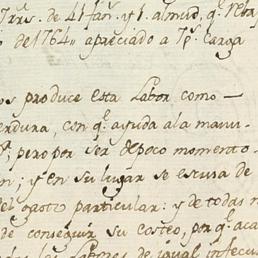 de 41 fan.s y 1 almud, q.e
de 1764,, apreciado a 7 p.s Carga
os produce esta Labor como
erdura, con q.e ayuda ala manu-
; pero por ser de poco momento
n; y en su lugar se escusa de
del gasto particular: y de todas
de conseguir su costeo, por q.e aca
Labores de igual infecun